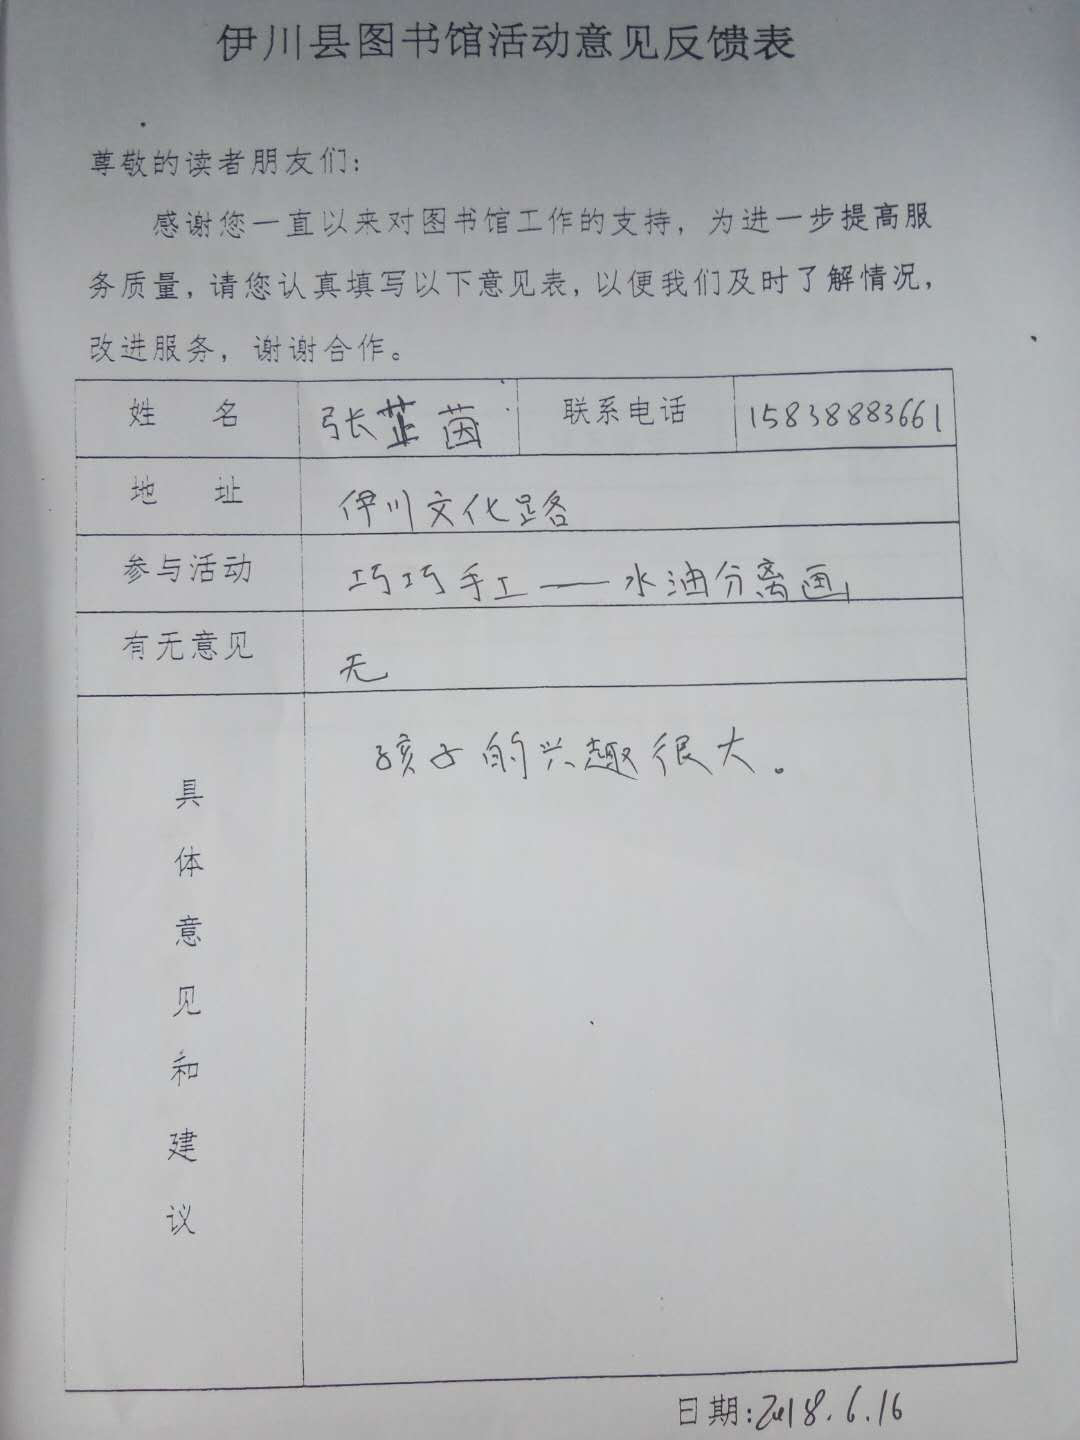 伊川县图书馆活动意见反馈表
尊敬的读者朋友们：
感谢您一直以来对图书馆工作的支持，为进一步提高服
务质量，请您认真填写以下意见表，以便我们及时了解情况，
改进服务，谢谢合作。
姓 名 张芷茵 联系电话 15838883661
地 址 伊川文化路
参与活动 巧巧手工——水油分离画
有无意见 无
具体意见和建议 孩子的兴趣很大。
日期：2018.6.16